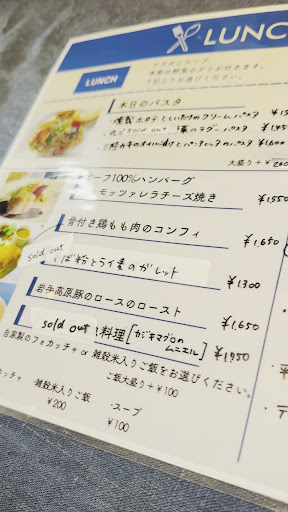 LUNC
サラダとスープ、
季節の野菜のグリルが付きます。
下記よりお選びください。
LUNCH
本日のパスタ
・燻製ホタテといたけのクリームパスタ
sold out 豚のラグーパスタ
のオイル漬けとパンチェッタのパスタ ¥1600
大盛り+¥200
ビーフ100%ハンバーグ
モッツァレラチーズ焼き ¥1550
骨付き鶏もも肉のコンフィ ¥1,650
sold out
そば粉とライ麦のガレット ¥1300
岩手高原豚のロースのロースト ¥1,650
sold out 料理[カジキマグロのムニエル] ¥1,750
自家製のフォカッチャ or 雑穀米入りご飯をお選びください。
ご飯大盛り+¥100
カッチャ ・雑穀米入りご飯 ¥200
・スープ ¥100